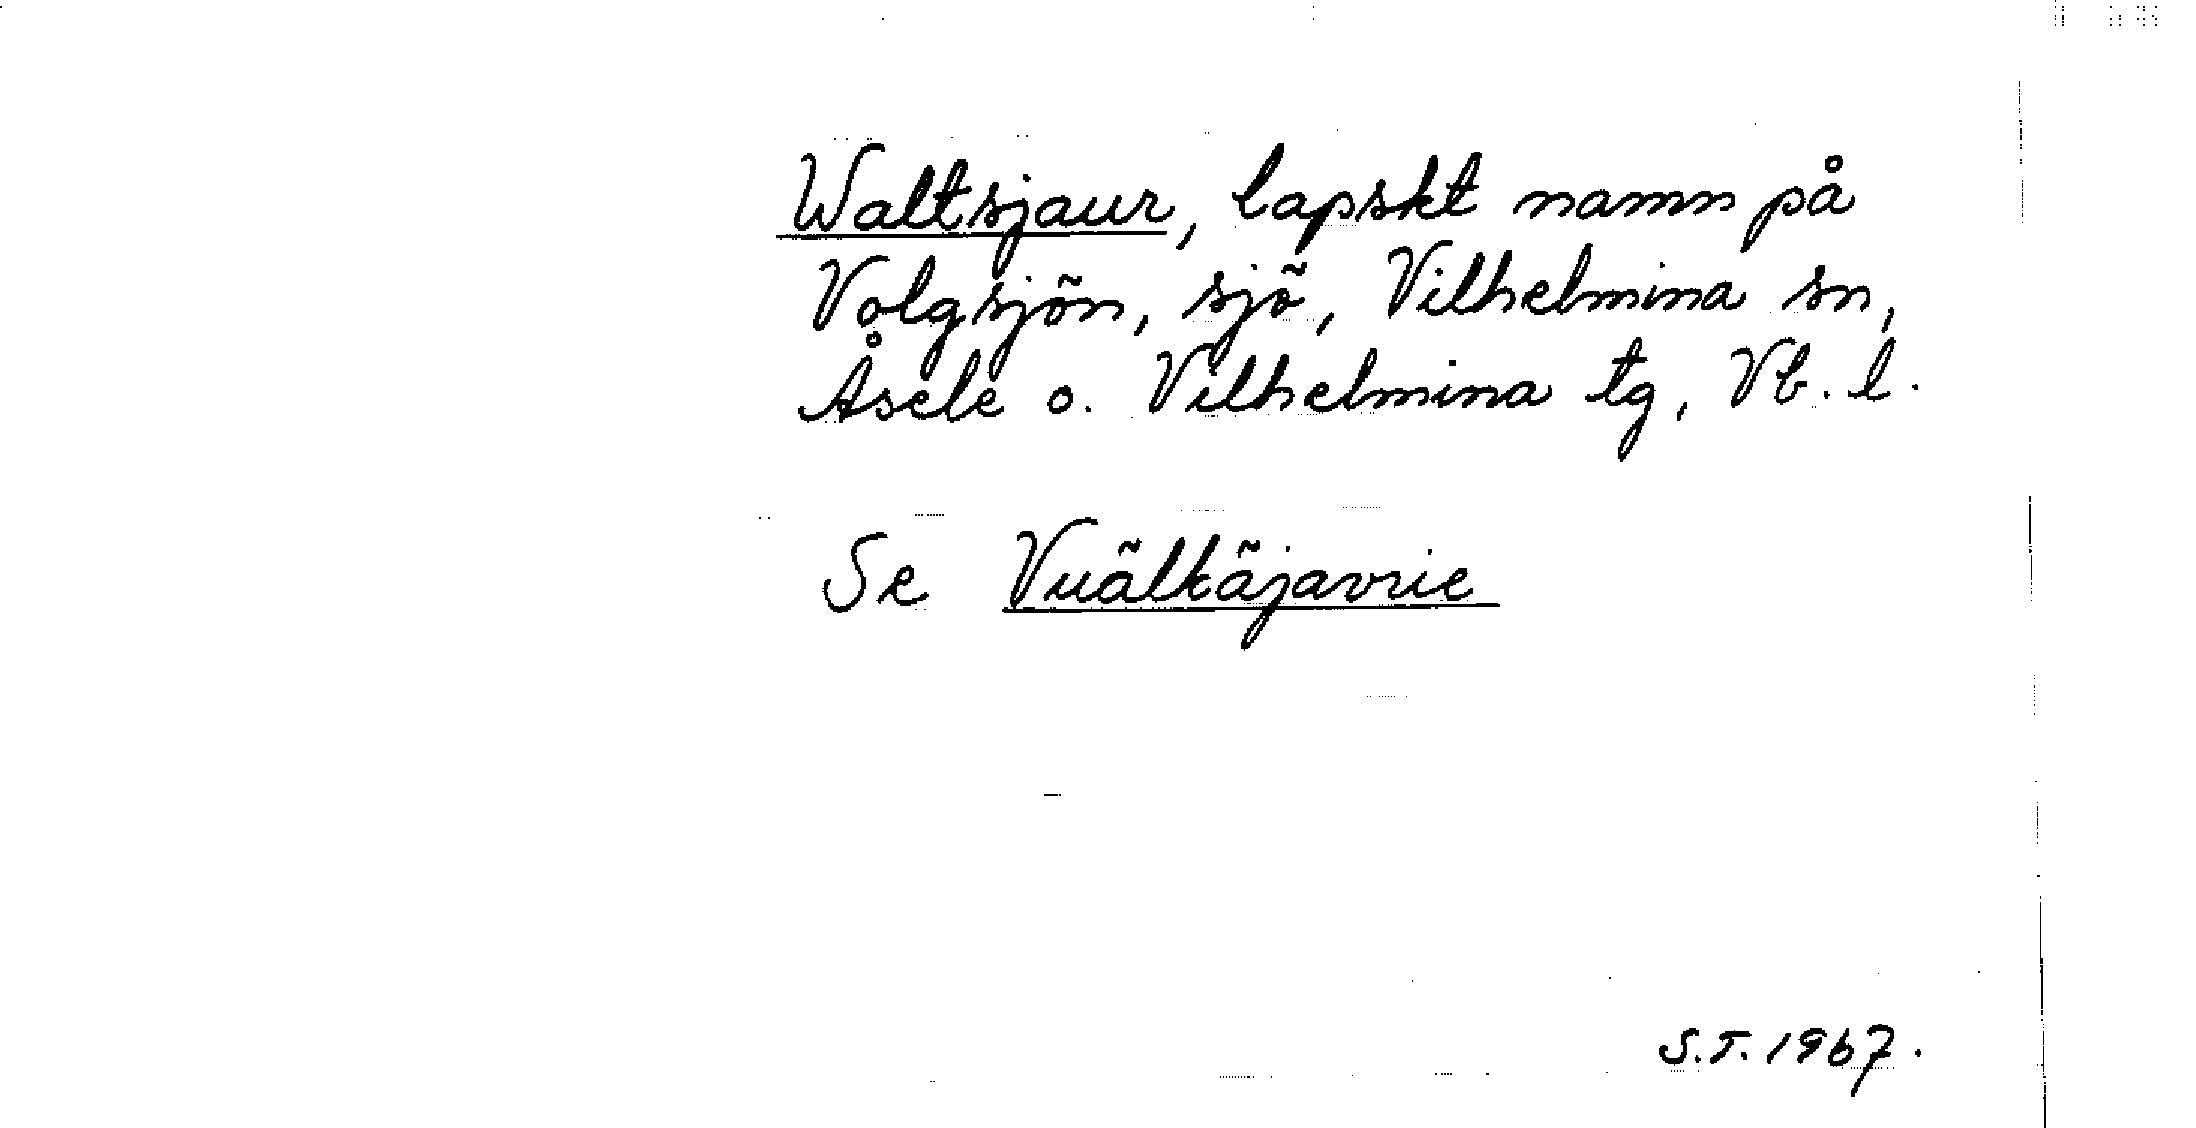 Waltsjaur, lapskt namn på
Volgsjön, sjö, Vilhelmina sn,
Åsele o. Vilhelmina tg, Vb. l.
Se Vuälkäjavrie
S.T. 1967.